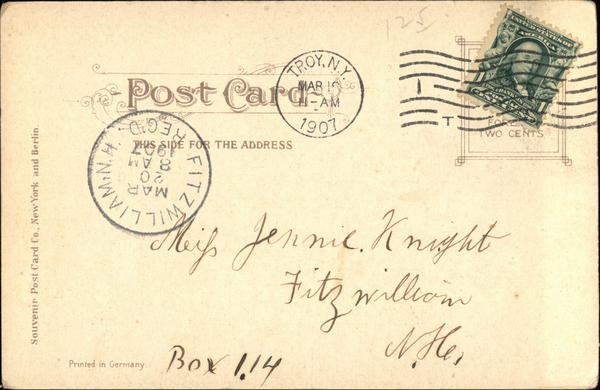 125
Post Card
THIS SIDE FOR THE ADDRESS
TROY, N.Y.
MAR 1
11-AM
1907
1
T
TWO CENTS
FITZWILLIAM, N.H.
MAR
20
8 AM
1907
REC'D.
Miss Jennie Knight
Fitzwilliam
N.H.
Box 114
Souvenir Post Card Co., New York and Berlin.
Printed in Germany